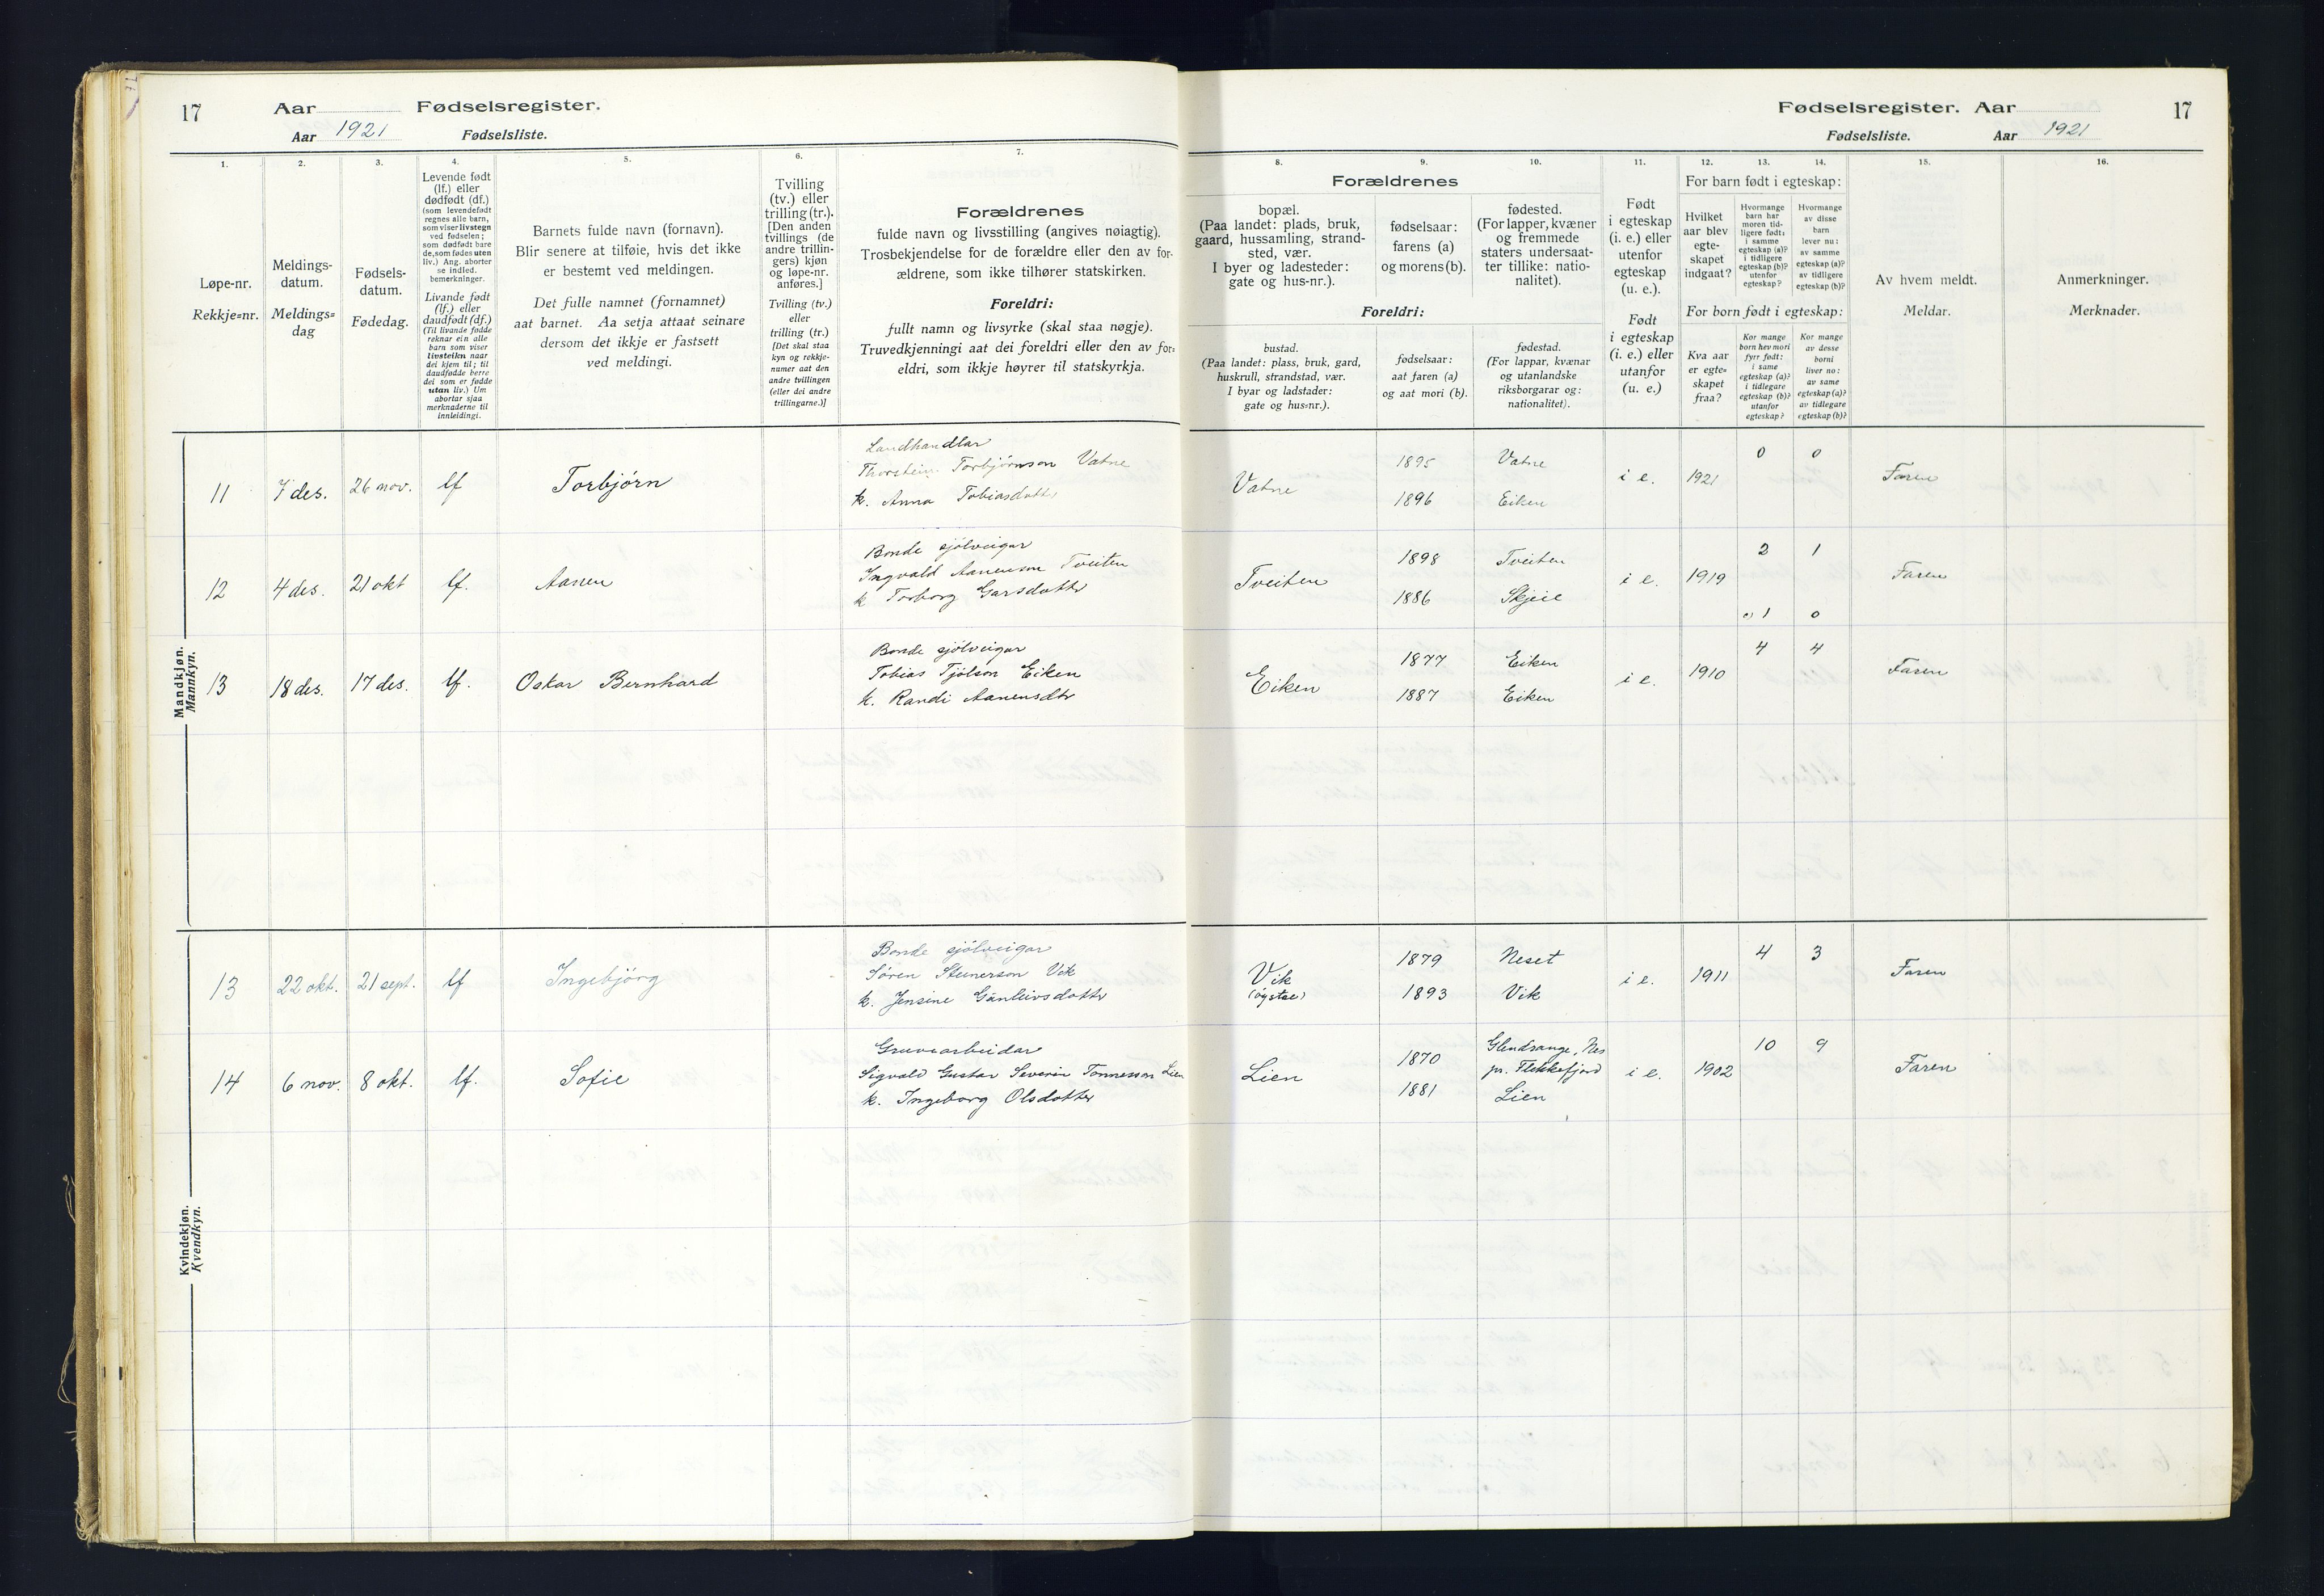 17 Aar Fødselsregister.
Aar 1921 Fødselsliste.
Fødselsregister. Aar 17
Fødselsliste. Aar 1921
1. 2. 3. 4. 5. 6. 7. 8. 9. 10. 11. 12. 13. 14. 15. 16.
Løpe-nr.
Rekkje=nr.
Meldings-
datum.
Meldings=
dag
Fødsels-
datum.
Fødedag.
Levende født
(lf.) eller
dødfødt (df.)
(som levendefødt
regnes alle barn,
som viser livstegn
ved fødselen;
som dødfødt bare
de, som fødes uten
liv.) Ang. aborter
se indled.
bemerkninger.
Livande født
(lf.) eller
daudfødt (df.)
(Til livande fødde
reknar ein alle
barn som viser
livsteikn naar
dei kjem til; til
daudfødde berre
dei som er fødde
utan liv.) Um
abortar sjaa
merknaderne til
innleidingi.
Barnets fulde navn (fornavn).
Blir senere at tilføie, hvis det ikke
er bestemt ved meldingen.
Det fulle namnet (fornamnet)
aat barnet. Aa setja attaat seinare
dersom det ikkje er fastsett
ved meldingi.
Tvilling
(tv.) eller
trilling (tr.).
[Den anden
tvillings (de
andre trillin-
gers) kjøn
og løpe-nr.
anføres.]
Tvilling (tv.)
eller
trilling (tr.)
[Det skal staa
kyn og rekkje-
numer aat den
andre tvillingen
(eller dei andre
trillingarne.)]
Forældrenes
fulde navn og livsstilling (angives nøiagtig).
Trosbekjendelse for de forældre eller den av for-
ældrene, som ikke tilhører statskirken.
Foreldri:
fullt namn og livsyrke (skal staa nøgje).
Truvedkjenningi aat dei foreldri eller den av for=
eldri, som ikkje høyrer til statskyrkja.
Forældrenes
bopæl.
(Paa landet: plads, bruk,
gaard, hussamling, strand-
sted, vær.
I byer og ladesteder:
gate og hus-nr.).
fødselsaar:
farens (a)
og morens (b).
fødested.
(For lapper, kvæner
og fremmede
staters undersaat-
ter tillike: natio-
nalitet).
Foreldri:
bustad.
(Paa landet: plass, bruk, gard,
huskrull, strandstad, vær.
I byar og ladstader:
gate og hus=nr.).
fødselsaar:
aat faren (a)
og aat mori (b).
fødestad.
(For lappar, kvænar
og utanlandske
riksborgarar og:
nationalitet).
Født
i egteskap
(i. e.) eller
utenfor
egteskap
(u. e.).
Født
i egteskap
(i. e.) eller
utanfor
(u. e.)
For barn født i egteskap:
Hvilket
aar blev
egte-
skapet
indgaat?
Hvormange
barn har
moren tid-
ligere født:
i samme
egteskap (a)?
i tidligere
egteskap (b)?
utenfor
egteskap?
Hvormange
av disse
barn
lever nu:
av samme
egteskap (a)?
av tidligere
egteskap (b)?
For born født i egteskap:
Kva aar
er egte=
skapet
fraa?
Kor mange
born hev mori
fyrr født:
i same
egteskap (a)?
i tidlegare
egteskap (b)?
utanfor
egteskap?
Kor mange
av desse
borni
liver no:
av same
egteskap (a)?
av tidlegare
egteskap (b)?
Av hvem meldt.
Meldar.
Anmerkninger.
Merknader.
Mandkjøn.
Mannkyn.
Landhandlar
Thorstein Torbjörnson Vatne
k. Anna Tobiasdottr
11 7 des. 26 nov. lf Torbjörn Vatne 1895 Vatne i e. 1921 0 0 Faren
1896 Eiken
Bonde sjölveigar
Ingvald Aanenson Tveiten
k Torborg Garsdottr
12 4 des. 21 okt lf. Aanen Tveiten 1898 Tveiten i e. 1919 2 1 Faren
1886 Skjeie
1 0
Bonde sjölveigar
Tobias Tjölson Eiken
k. Randi Aanensdtr
13 18 des. 17 des. lf. Oskar Bernhard Eiken 1877 Eiken i e. 1910 4 4 Faren
1887 Eiken
Kvindekjøn.
Kvendkyn.
Bonde sjölveigar
Sören Steinerson Vik
k. Jensine Gunleivsdottr
13 22 okt. 21 sept. lf Ingebjörg Vik 1879 Neset i e. 1911 4 3 Faren
1893 Vik
Gruvearbeidar
Sigvald Gustav Severin Tönnesson Lien
k. Ingeborg Olsdotter
14 6 nov. 8 okt. lf. Sofie Lien 1870 Glendrange, Nes
pr. Flekkefjord i e. 1902 10 9 Faren
1881 Lien